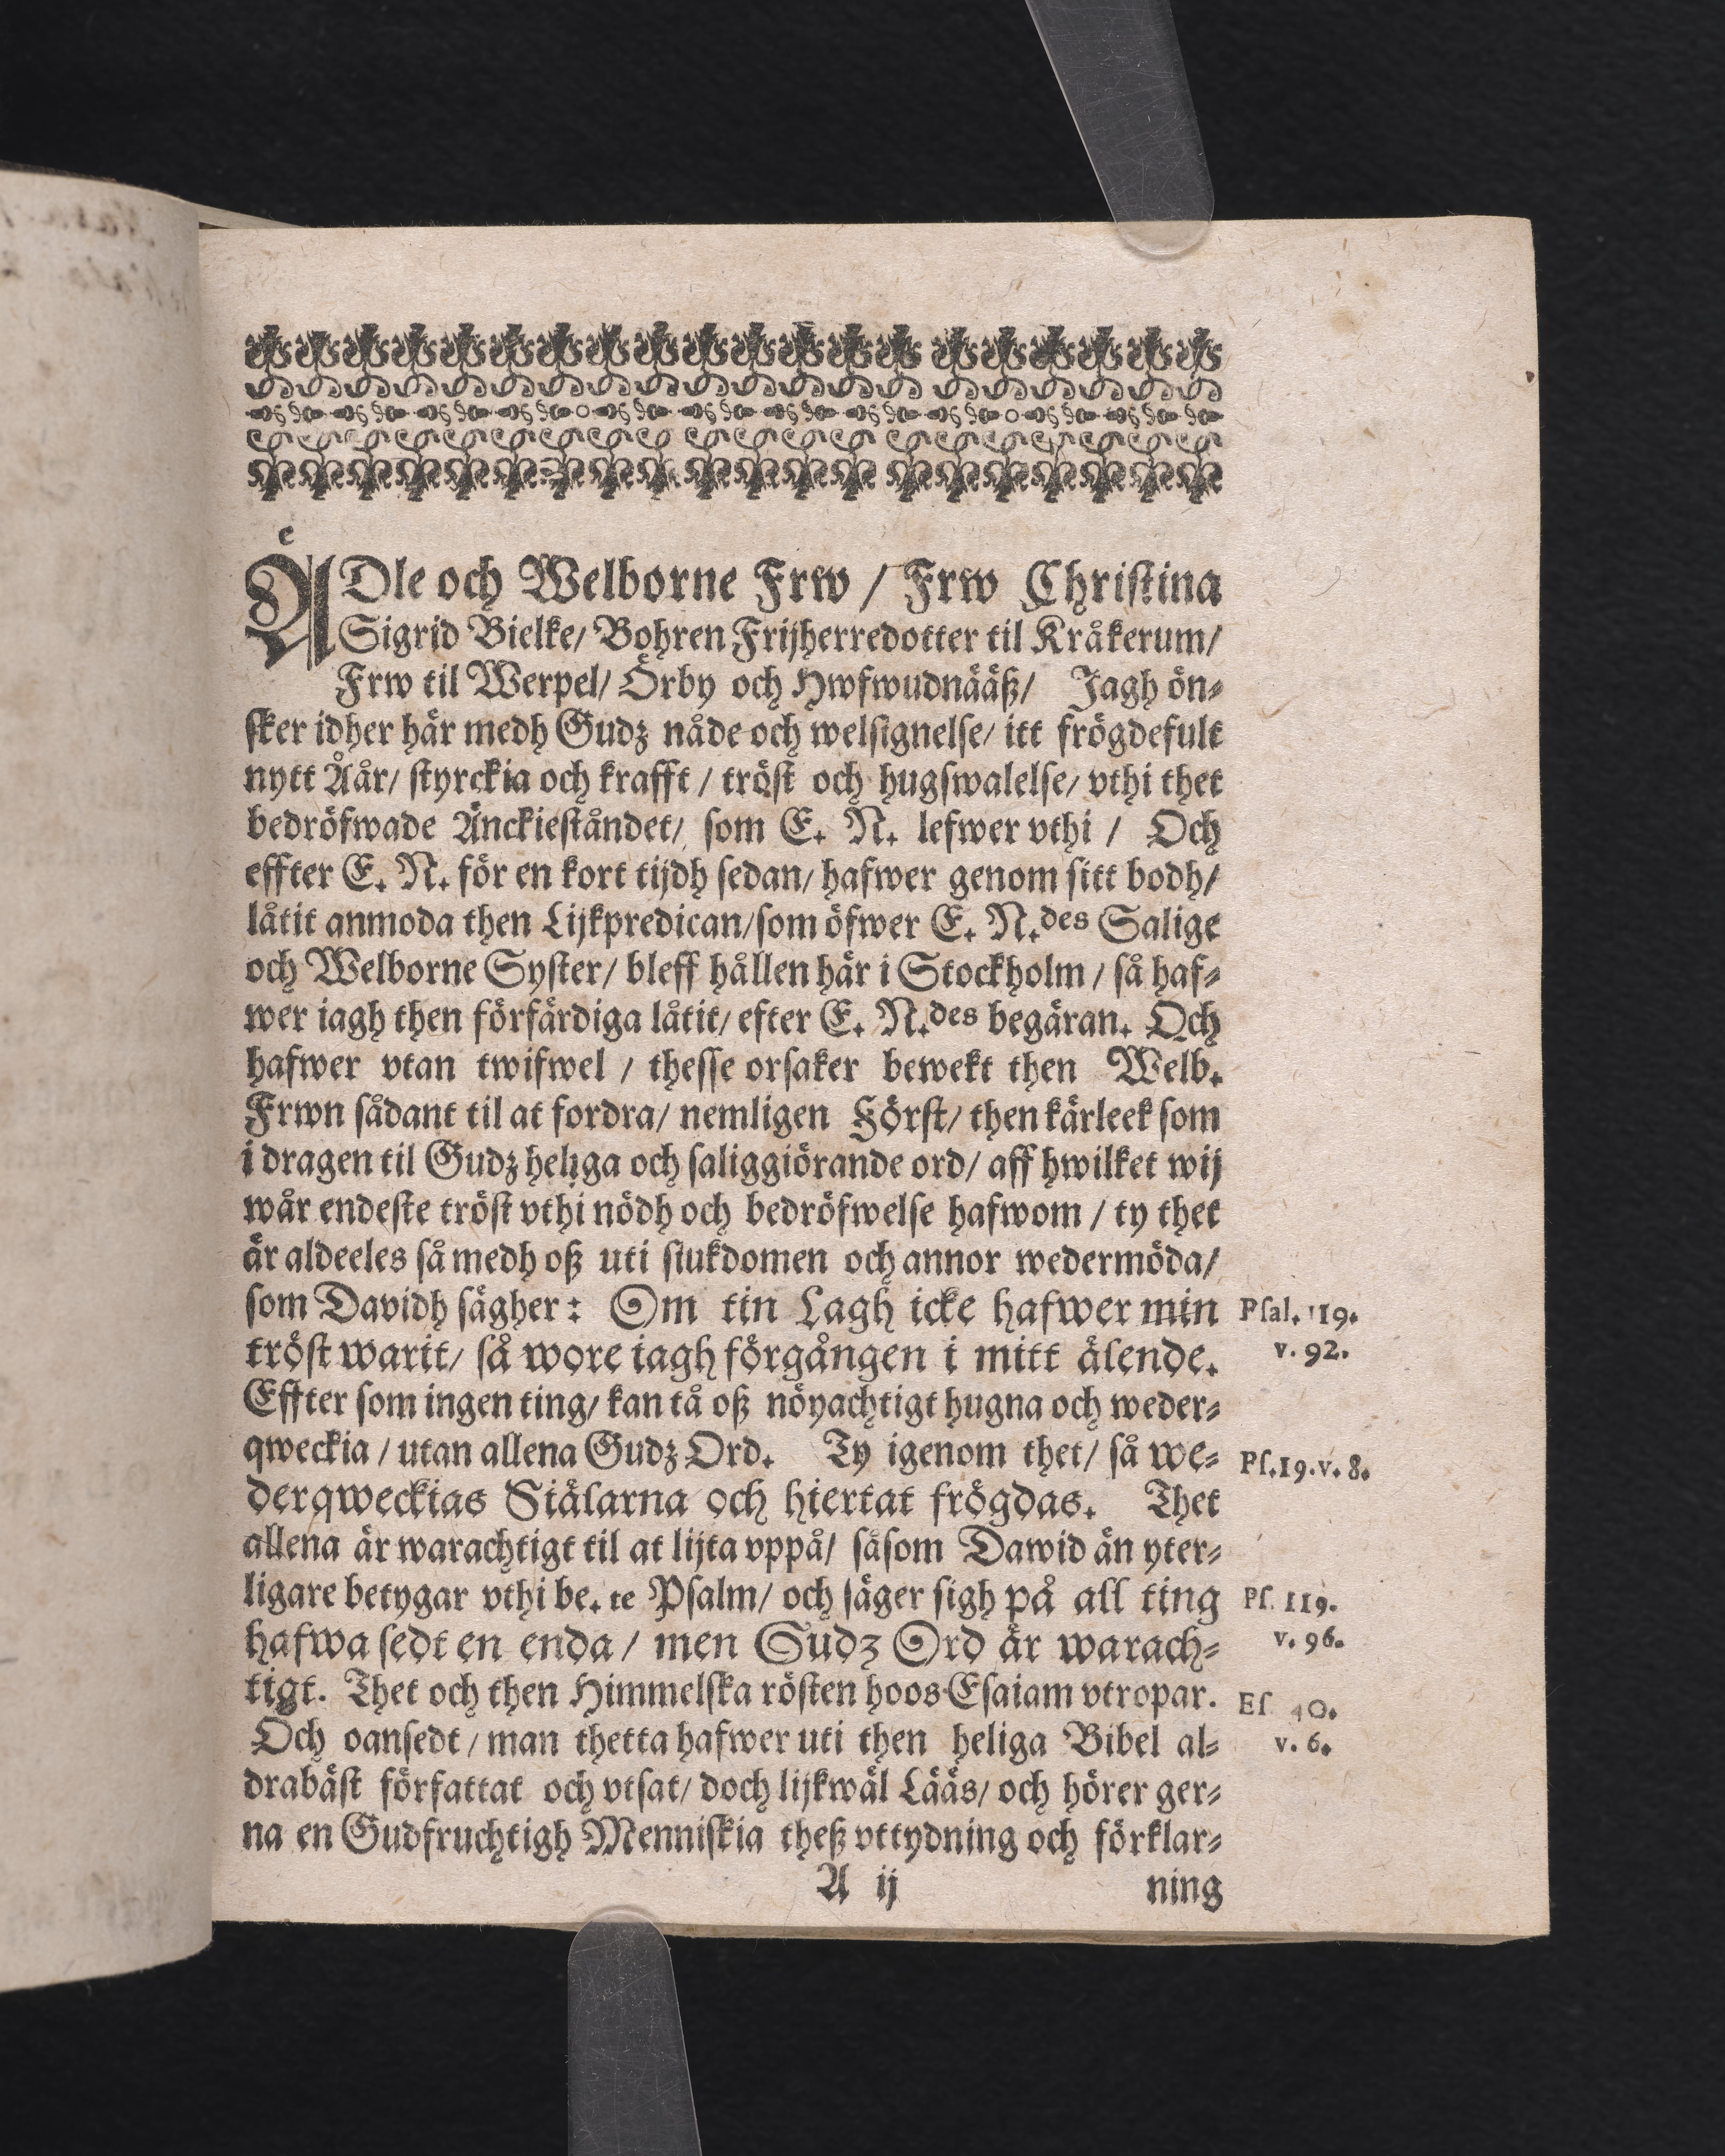 ÄDle och Welborne Frw / Frw Christina
Sigrid Bielke/ Bohren Frijherredotter til Kråkerum/
Frw til Werpel/ Örby och Hwfwudnääß/ Jagh ön-
sker idher här medh Gudz nåde och welsignelse/ itt frögdefult
nytt Åår/ styrckia och krafft / tröst och hugswalelse/ vthi thet
bedröfwade Änckieståndet/ som E. N. lefwer vthi / Och
effter E. N. för en kort tijdh sedan/ hafwer genom sitt bodh/
låtit anmoda then Lijkpredican/som öfwer E. N.des Salige
och Welborne Syster/ bleff hållen här i Stockholm / så haf-
wer iagh then förfärdiga låtit/ efter E. N.des begäran. Och
hafwer vtan twifwel / thesse orsaker bewekt then Welb.
Frwn sådant til at fordra/ nemligen Först/ then kärleek som
i dragen til Gudz heliga och saliggiörande ord/ aff hwilket wij
wår endeste tröst vthi nödh och bedröfwelse hafwom / ty thet
är aldeeles så medh oß uti siukdomen och annor wedermöda/
som Davidh sägher: Om tin Lagh icke hafwer min
Psal. 119.
tröst warit/ så wore iagh förgången i mitt älende.
v. 92.
Effter som ingen ting/ kan tå oß nöyachtigt hugna och weder-
qweckia / utan allena Gudz Ord. Ty igenom thet/ så we-
Ps.19.v.8.
derqweckias Siälarna och hiertat frögdas. Thet
allena är warachtigt til at lijta vppå/ såsom Dawid än yter-
ligare betygar vthi be.te Psalm/ och säger sigh på all ting
Ps. 119.
hafwa sedt en enda / men Gudz Ord är warach-
v. 96.
tigt. Thet och then Himmelska rösten hoos Esaiam vtropar.
Es. 40.
Och oansedt / man thetta hafwer uti then heliga Bibel al-
v. 6.
drabäst författat och vtsat/ doch lijkwäl Lääs/ och hörer ger-
na en Gudfruchtigh Menniskia theß vttydning och förklar-
A ij ning